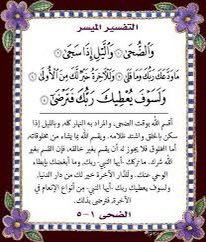 التفسير الميسر
وَالضُّحَىٰ ۝ وَاللَّيْلِ إِذَا سَجَىٰ ۝
مَا وَدَّعَكَ رَبُّكَ وَمَا قَلَىٰ ۝ وَلَلْآخِرَةُ خَيْرٌ لَّكَ مِنَ الْأُولَىٰ ۝
وَلَسَوْفَ يُعْطِيكَ رَبُّكَ فَتَرْضَىٰ ۝
أقسم الله بوقت الضحى، والمراد به النهار كله، وبالليل إذا
سكن بالخلق واشتد ظلامه. ويقسم الله بما يشاء من مخلوقاته،
أما المخلوق فلا يجوز له أن يقسم بغير خالقه، فإن القسم بغير
الله شرك. ما تركك -أيها النبي- ربك، وما أبغضك بإبطاء
الوحي عنك. وللدار الآخرة خير لك من دار الدنيا،
ولسوف يعطيك ربك -أيها النبي- من أنواع الإنعام في
الآخرة، فترضى بذلك.
الضحى ١-٥